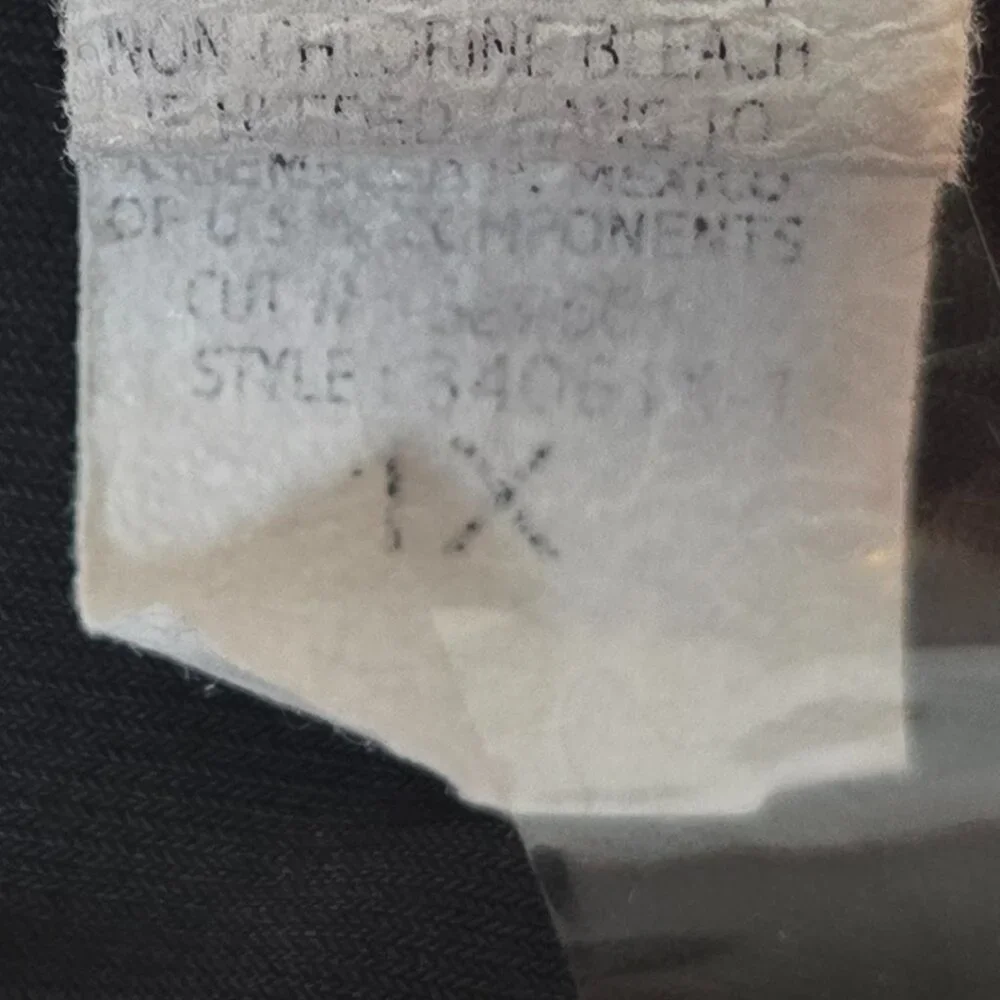 NON CHLORINE BLEACH
IF NEEDED HANG TO
ASSEMBLED IN MEXICO
OF U.S. COMPONENTS
CUT #
STYLE: 34061X-1
1X